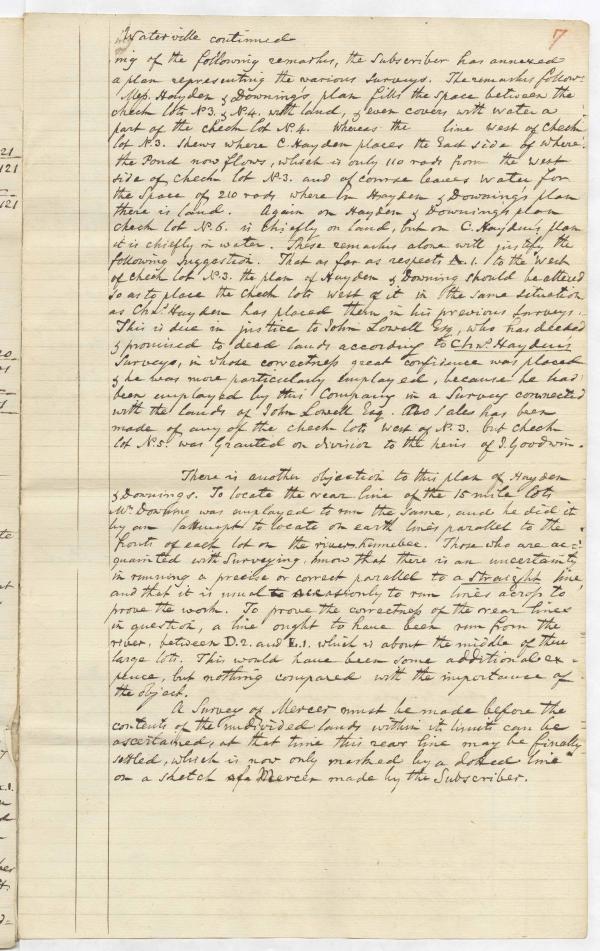 7
Waterville continued
ing of the following remarks, the Subscriber has annexed
a plan representing the various Surveys. The remarks follow:
Mess. Hayden & Downing's plan fills the space between the
check lots No 3. & No 4. with land, & even covers with water a
part of the check lot No 4. Whereas the line west of Check
lot No 3. Shews where C. Hayden places the East side of where
the Pond now flows, which is only 110 rods from the West
side of check lot No 3. and of course leaves water for
the Space of 210 rods where on Hayden & Downing's plan
there is land. Again on Hayden & Downings plan
check lot No 6. is chiefly on land, but on C. Hayden's plan
it is chiefly in water. These remarks alone will justify the
following Suggestion. That as far as respects D. 1. to the West
of check lot No 3. the plan of Hayden & Downing should be altered
so as to place the check lots West of it in the same Situation
as Chas. Hayden has placed them in his previous Surveys.
This is due in justice to John Lowell Esq, who has deeded
& promised to deed lands according to Chas. Hayden's
Surveys, in whose correctness great confidence was placed
& he was more particularly employed, because he had
been employed by this Company in a Survey connected
with the lands of John Lowell Esq. Sales has been
made of any of the check lots West of No 3. but check
lot No 5. was Granted on division to the heirs of J. Goodwin.
There is another objection to this plan of Hayden
& Downings. To locate the rear line of the 15 mile lots
Mr Downing was employed to run the same, and he did it
by an attempt to locate on earth lines parallel to the
fronts of each lot on the river Kennebec. Those who are ac-
quainted with Surveying, know that there is an uncertainty
in running a precise or correct parallel to a straight line
and that it is usual to run lines across to
prove the work. To prove the correctness of the rear lines
in question, a line ought to have been run from the
river, between D. 2. and E. 1. which is about the middle of these
large lots. This would have been some additional ex-
pence, but nothing compared with the importance of
the object.
A Survey of Mercer must be made before the
contents of the undivided lands within its limits can be
ascertained, at that time this rear line may be finally
settled, which is now only marked by a dotted line
on a sketch of Mercer made by the Subscriber.
21
121
121
20